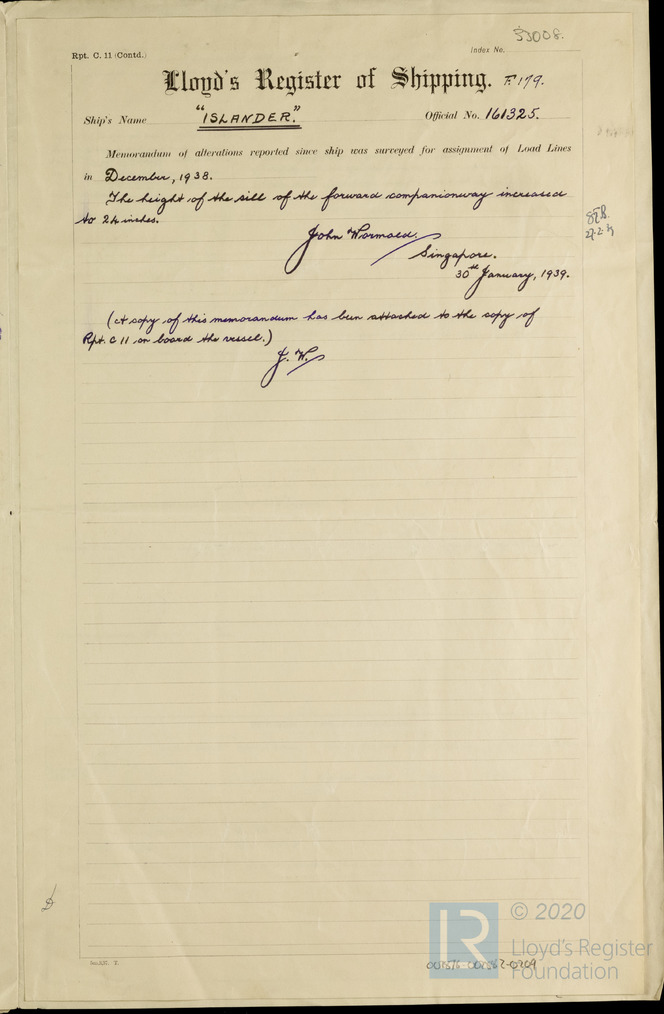 33008.
Rpt. C. 11 (Contd.)
Index No.
Lloyd's Register of Shipping. F.179.
Ship's Name "ISLANDER." Official No. 161325.
Memorandum of alterations reported since ship was surveyed for assignment of Load Lines
in December, 1938.
The height of the sill of the forward companionway increased
to 24 inches.
27.2.39
John Wormald.
Singapore.
30th January, 1939.
(A copy of this memorandum has been attached to the copy of
Rpt. C 11 on board the vessel.)
J. W.
© 2020
Lloyd's Register
Foundation